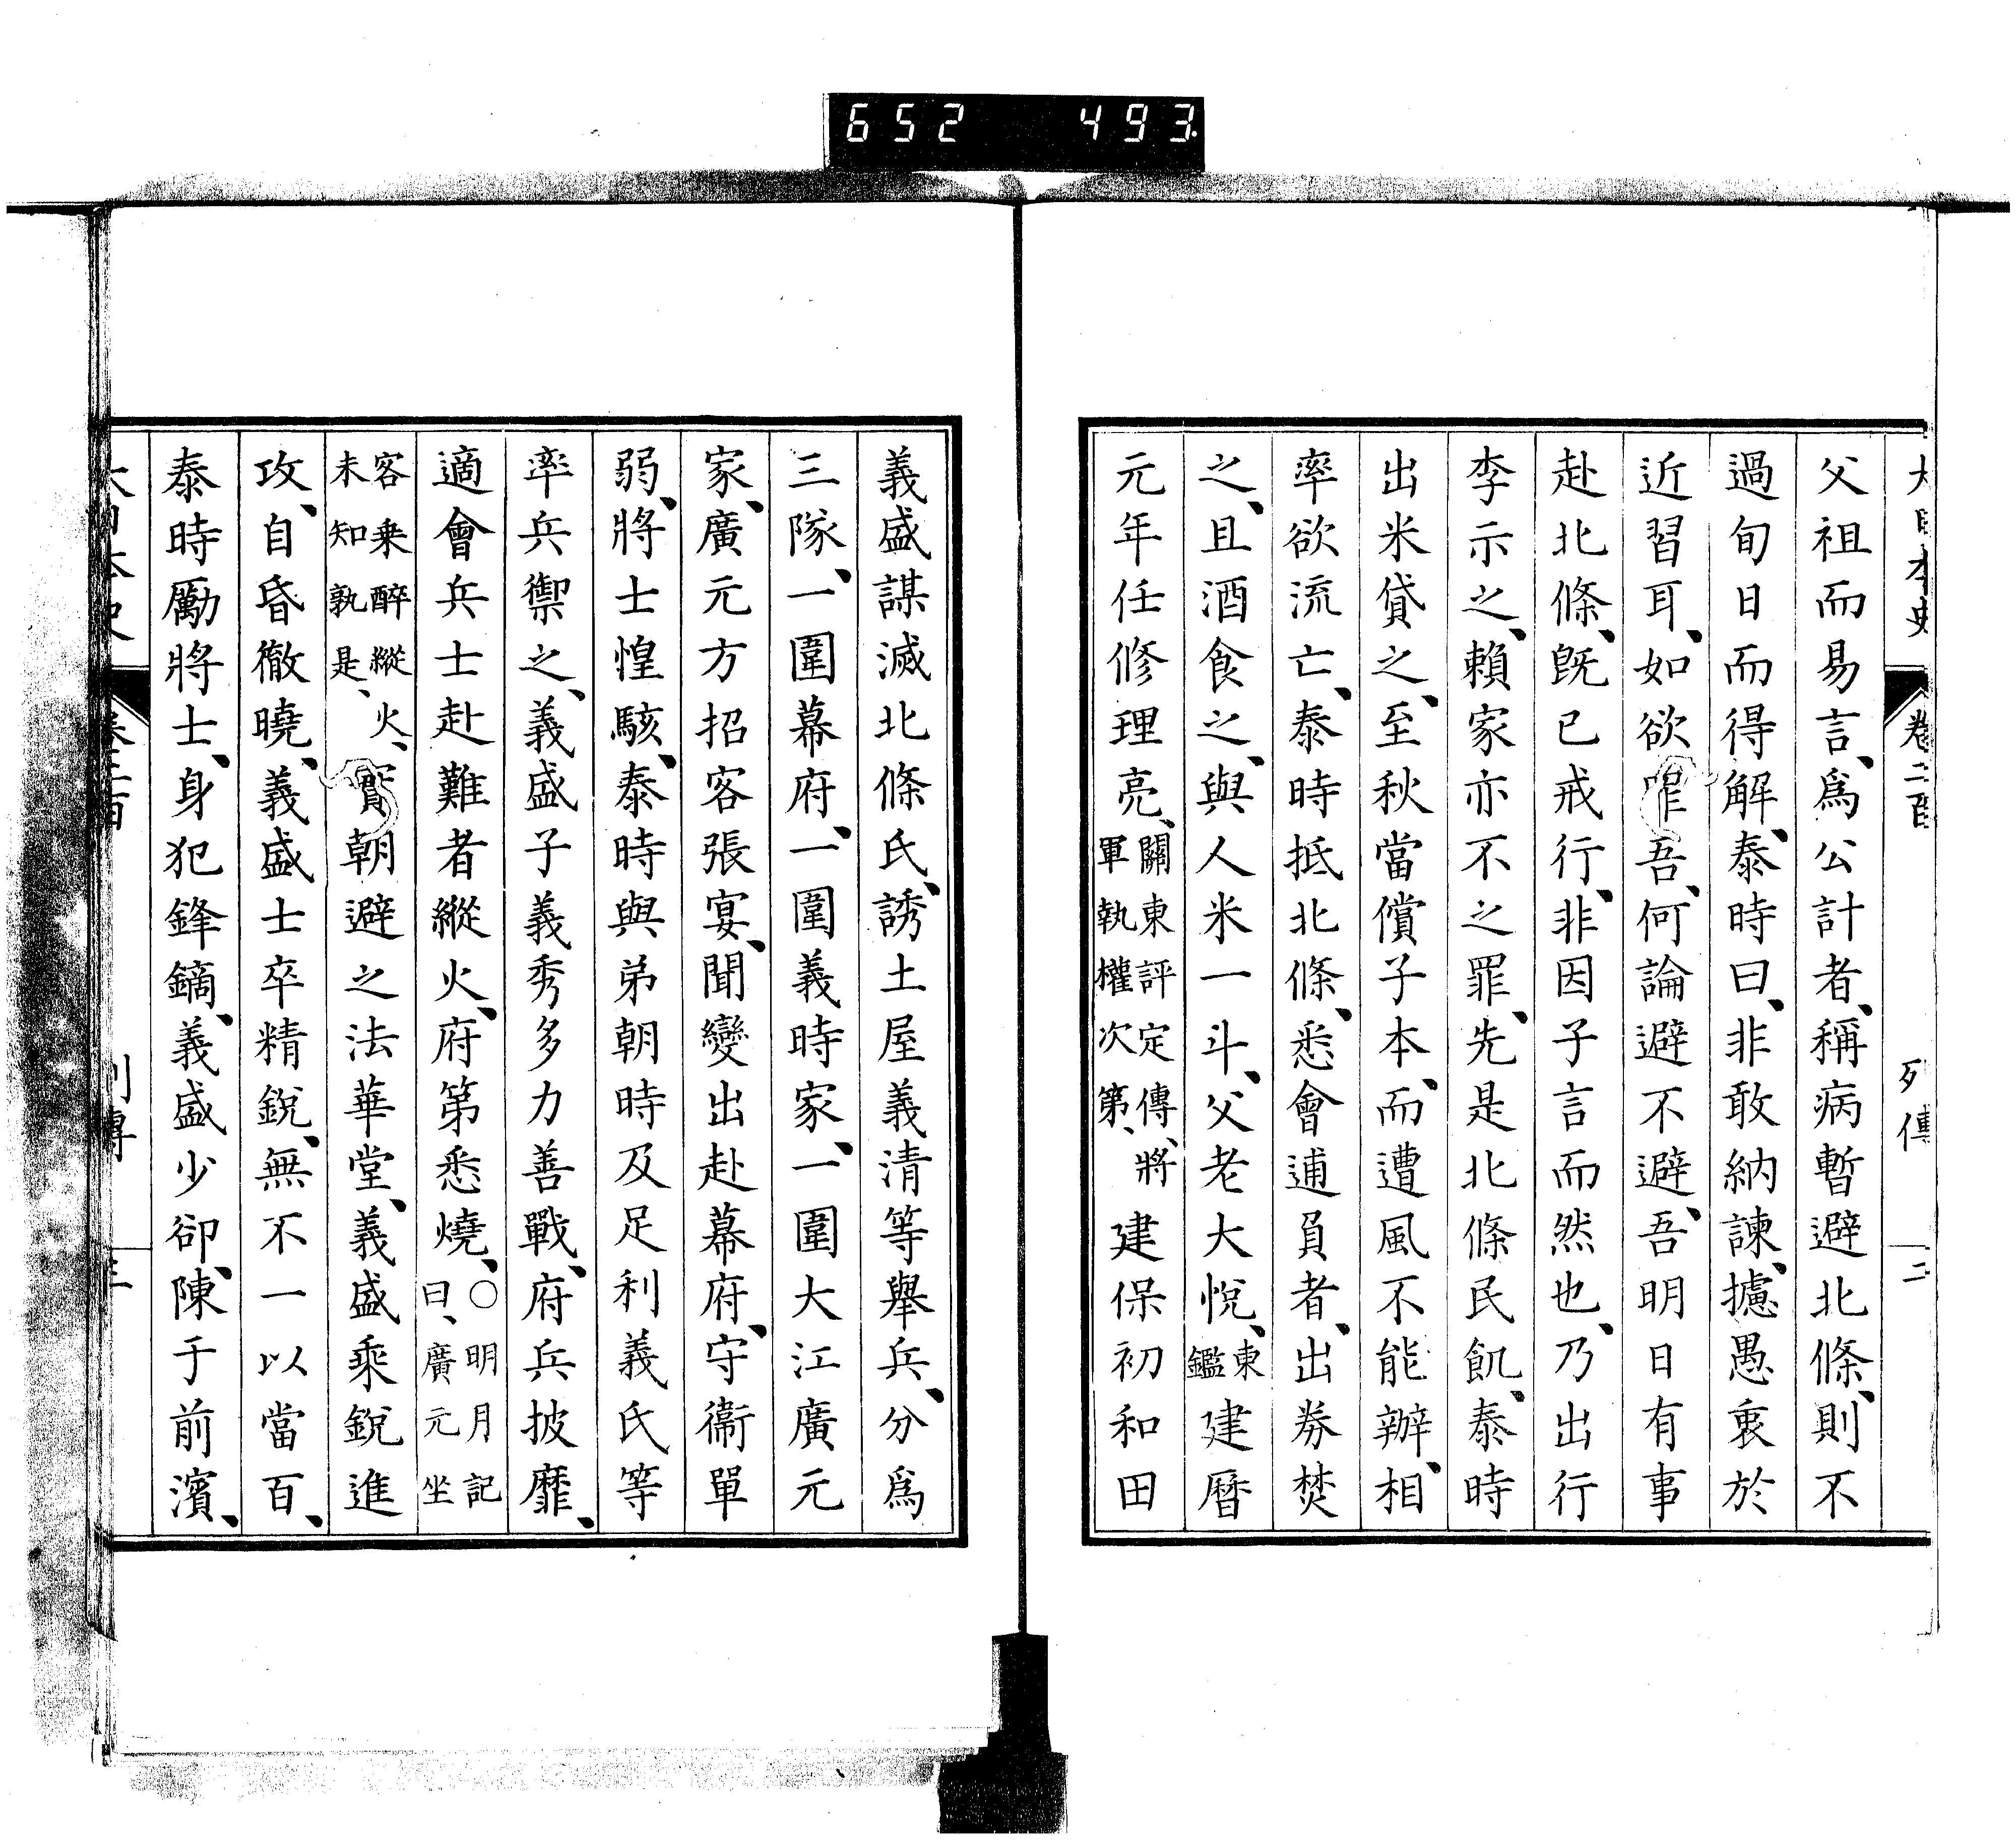 652 493
大日本史 卷二百 列傳 二
父祖而易言、爲公計者、稱病暫避北條、則不
過旬日而得解、泰時曰、非敢納諫、攄愚衷於
近習耳、如欲罪吾、何論避不避、吾明日有事
赴北條、既已戒行、非因子言而然也、乃出行
李示之、賴家亦不之罪、先是北條民飢、泰時
出米貸之、至秋當償子本、而遭風不能辦、相
率欲流亡、泰時抵北條、悉會逋負者、出券焚
之、且酒食之、與人米一斗、父老大悅、東鑑建曆
元年任修理亮、關東評定傳、將軍執權次第、建保初和田
義盛謀滅北條氏、誘土屋義清等舉兵、分爲
三隊、一圍幕府、一圍義時家、一圍大江廣元
家、廣元方招客張宴、聞變出赴幕府、守衞單
弱、將士惶駭、泰時與弟朝時及足利義氏等
率兵禦之、義盛子義秀多力善戰、府兵披靡、
適會兵士赴難者縱火、府第悉燒、○明月記曰、廣元坐
客乘醉縱火、未知孰是、實朝避之法華堂、義盛乘銳進
攻、自昏徹曉、義盛士卒精銳、無不一以當百、
泰時勵將士、身犯鋒鏑、義盛少卻、陳于前濱、
大日本史 卷二百 列傳 三